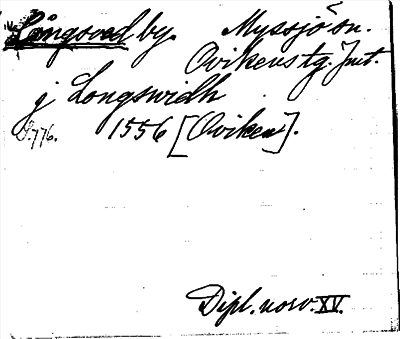 Långsved by. Myssjö sn.
Ovikens tg. Jmt.
j Longswidh
S. 776. 1556 [Oviken].
Dipl. norv. XV.